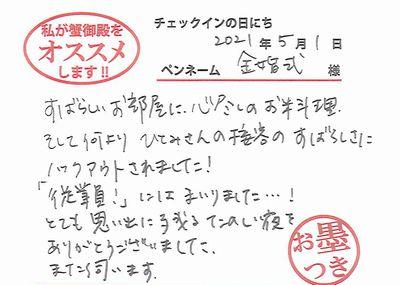 私が蟹御殿を
オススメ
します!!
チェックインの日にち
2021年5月1日
ペンネーム 金婚式 様
すばらしいお部屋に、心尽しのお料理
そして何より ひとみさんの接客のすばらしさに
ノックアウトされました!
「従業員!」にはまいりました…!
とても思い出に残るたのしい夜を
ありがとうございました。
また伺います。
お墨
つき